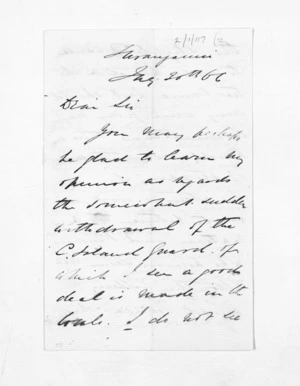 Turanganui
July 20th 66
Dear Sir
You may perhaps
be glad to learn my
opinion as regards
the somewhat sudden
withdrawal of the
C. Island Guard. of
which I see a good
deal is made in the
locals. I do not see